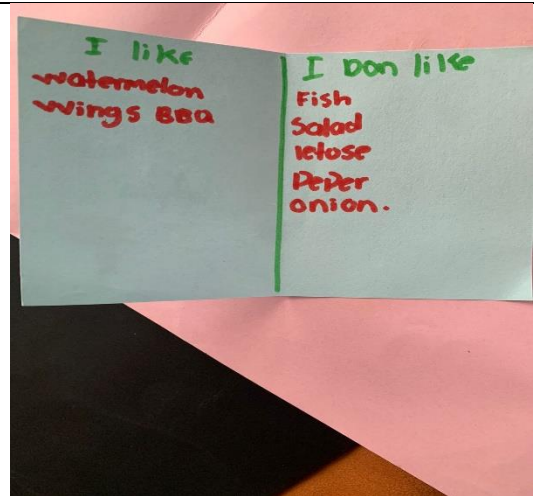 I like
watermelon
wings BBQ
I Don like
Fish
Salad
letose
PePer
onion.